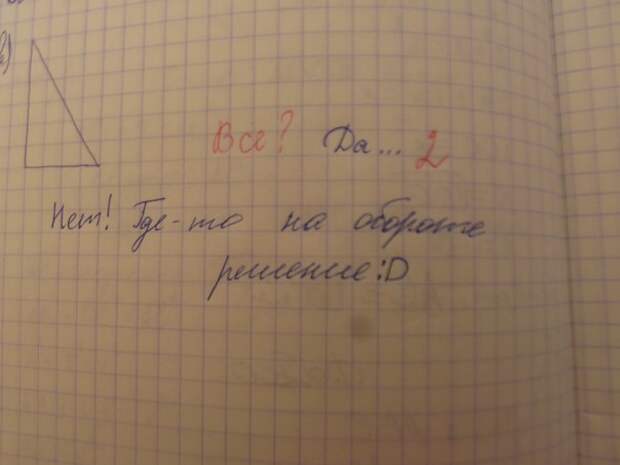 в)
Все? Да... 2
Нет! Где-то на обороте
решение :D